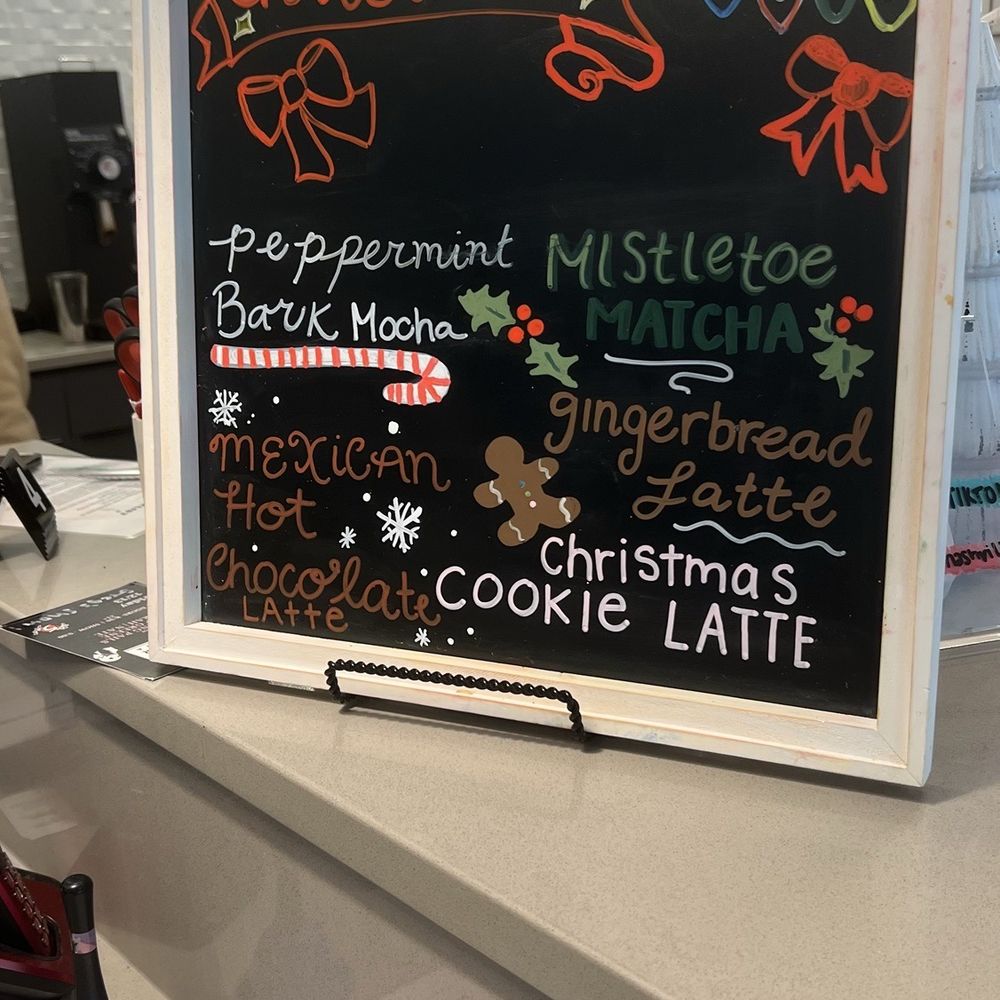 Peppermint
Bark Mocha
Mexican
Hot
Chocolate
Latte
Mistletoe
Matcha
gingerbread
Latte
Christmas
Cookie Latte
4